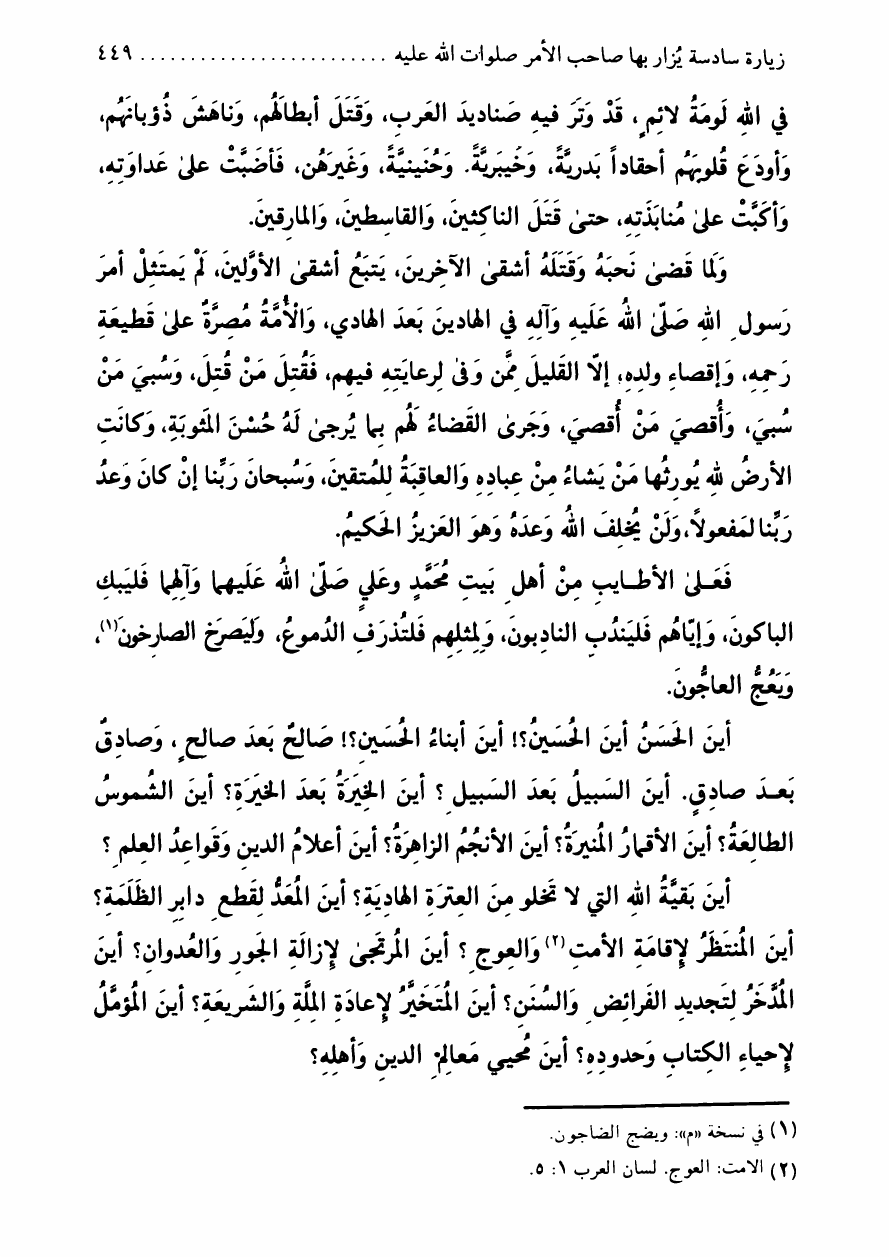 زيارة سادسة يُزار بها صاحب الأمر صلوات الله عليه ......................... ٤٤٩
في اللهِ لَومَةُ لائمٍ، قَدْ وَتَرَ فيهِ صَناديدَ العَربِ، وَقَتَلَ أبطالَهُم، وَناهَشَ ذُؤبانَهُم،
وَأودَعَ قُلوبَهُم أحقاداً بَدريَّةً، وَخَيبَريَّةً. وَحُنَينيَّةً، وَغَيرَهُن، فَأضَبَّتْ علىٰ عَداوَتِهِ،
وَأكَبَّتْ علىٰ مُنابَذَتِهِ، حتىٰ قَتَلَ الناكثينَ، وَالقاسطينَ، وَالمارقينَ.
وَلَمّا قَضىٰ نَحبَهُ وَقَتَلَهُ أشقىٰ الآخرينَ، يَتبَعُ أشقىٰ الأوَّلينَ، لَمْ يَمتَثِلْ أمرَ
رَسولِ اللهِ صَلّىٰ اللهُ عَلَيهِ وَآلِهِ في الهادينَ بَعدَ الهادي، وَالْأُمَّةُ مُصرَّةٌ علىٰ قَطيعَةِ
رَحِمِهِ، وَإقصاءِ ولدِهِ، إلّا القَليلَ مِمَّن وَفىٰ لِرعايَتِهِ فيهِم، فَقُتِلَ مَنْ قُتِلَ، وَسُبيَ مَنْ
سُبيَ، وَأُقصيَ مَنْ أُقصيَ، وَجَرىٰ القَضاءُ لَهُم بِما يُرجىٰ لَهُ حُسْنَ المَثوبَةِ، وَكانَتِ
الأرضُ للهِ يُورثُها مَنْ يَشاءُ مِنْ عِبادِهِ وَالعاقِبَةُ لِلمُتقينَ، وَسُبحانَ رَبِّنا إنْ كانَ وَعدُ
رَبِّنا لمَفعولاً، وَلَنْ يُخلِفَ اللهُ وَعدَهُ وَهوَ العَزيزُ الحَكيمُ.
فَعَـلىٰ الأطـايبِ مِنْ أهلِ بَيتِ مُحَمَّدٍ وعَليٍ صَلّىٰ اللهُ عَلَيهما وَآلِهما فَليَبكِ
الباكونَ، وَإيّاهُم فَليَندُبِ النادِبونَ، وَلِمثلِهِم فَلتُذرَفِ الدُموعُ، وَليَصرَخِ الصارخونَ(١)،
وَيَعُجُّ العاجُّونَ.
أينَ الحَسَنُ أينَ الحُسَينُ؟! أينَ أبناءُ الحُسَينِ؟! صَالحٌ بَعدَ صالحٍ، وَصادِقٌ
بَعـدَ صادِقٍ. أينَ السَبيلُ بَعدَ السَبيلِ؟ أينَ الخيَرَةُ بَعدَ الخيَرَةِ؟ أينَ الشُموسُ
الطالِعَةُ؟ أينَ الأقمارُ المُنيرَةُ؟ أينَ الأنجُمُ الزاهِرَةُ؟ أينَ أعلامُ الدينِ وَقَواعِدُ العِلمِ؟
أينَ بَقيَّةُ اللهِ التي لا تَخلو مِنَ العِترَةِ الهاديَةِ؟ أينَ المُعَدُّ لِقَطعِ دابِرِ الظَلَمَةِ؟
أينَ المُنتَظَرُ لِإقامَةِ الأمتِ(٢) وَالعِوجِ؟ أينَ المُرتَجىٰ لِإزالَةِ الجَورِ وَالعُدوانِ؟ أينَ
المُدَّخَرُ لِتَجديدِ الفَرائِضِ وَالسُنَنِ؟ أينَ المُتَخَيَّرُ لِإعادَةِ المِلَّةِ وَالشَريعَةِ؟ أينَ المُؤمَّلُ
لِإحياءِ الكِتابِ وَحدودِهِ؟ أينَ مُحيي مَعالِمِ الدينِ وَأهلِهِ؟
(١) في نسخة «م»: ويضج الضاجون.
(٢) الامت: العوج. لسان العرب ١: ٥.